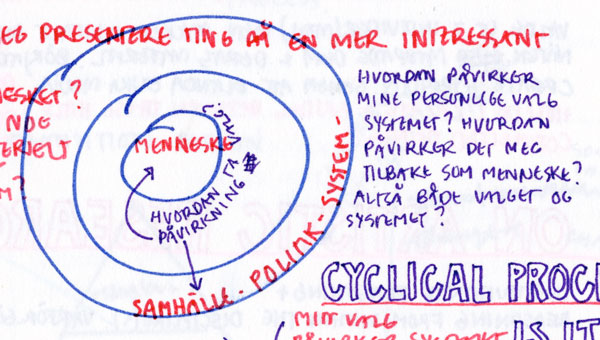 EG PRESENTERE TING PÅ EN MER INTERESSANT
NESKET?
NOE
ERIELT
M?
MENNESKE
VALG?
HVORDAN
PÅVIRKNING
SAMHÄLLE - POLITIK - SYSTEM -
HVORDAN PÅVIRKER
MINE PERSONLIGE VALG
SYSTEMET? HVORDAN
PÅVIRKER DET MEG
TILBAKE SOM MENNESKE?
ALTSÅ BÅDE VALGET OG
SYSTEMET?
CYCLICAL PROC
MITT VALG
PÅVIRKER SYSTEMET
IS IT